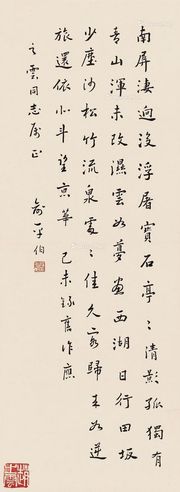 南屏淒迥沒浮屠寶石亭亭清影孤獨有
青山渾未改濕雲如夢畫西湖日行田坂
少塵沙松竹流泉處處佳久客歸來如逆
旅還依北斗望京華己未錄舊作應
之雲同志屬正
俞平伯